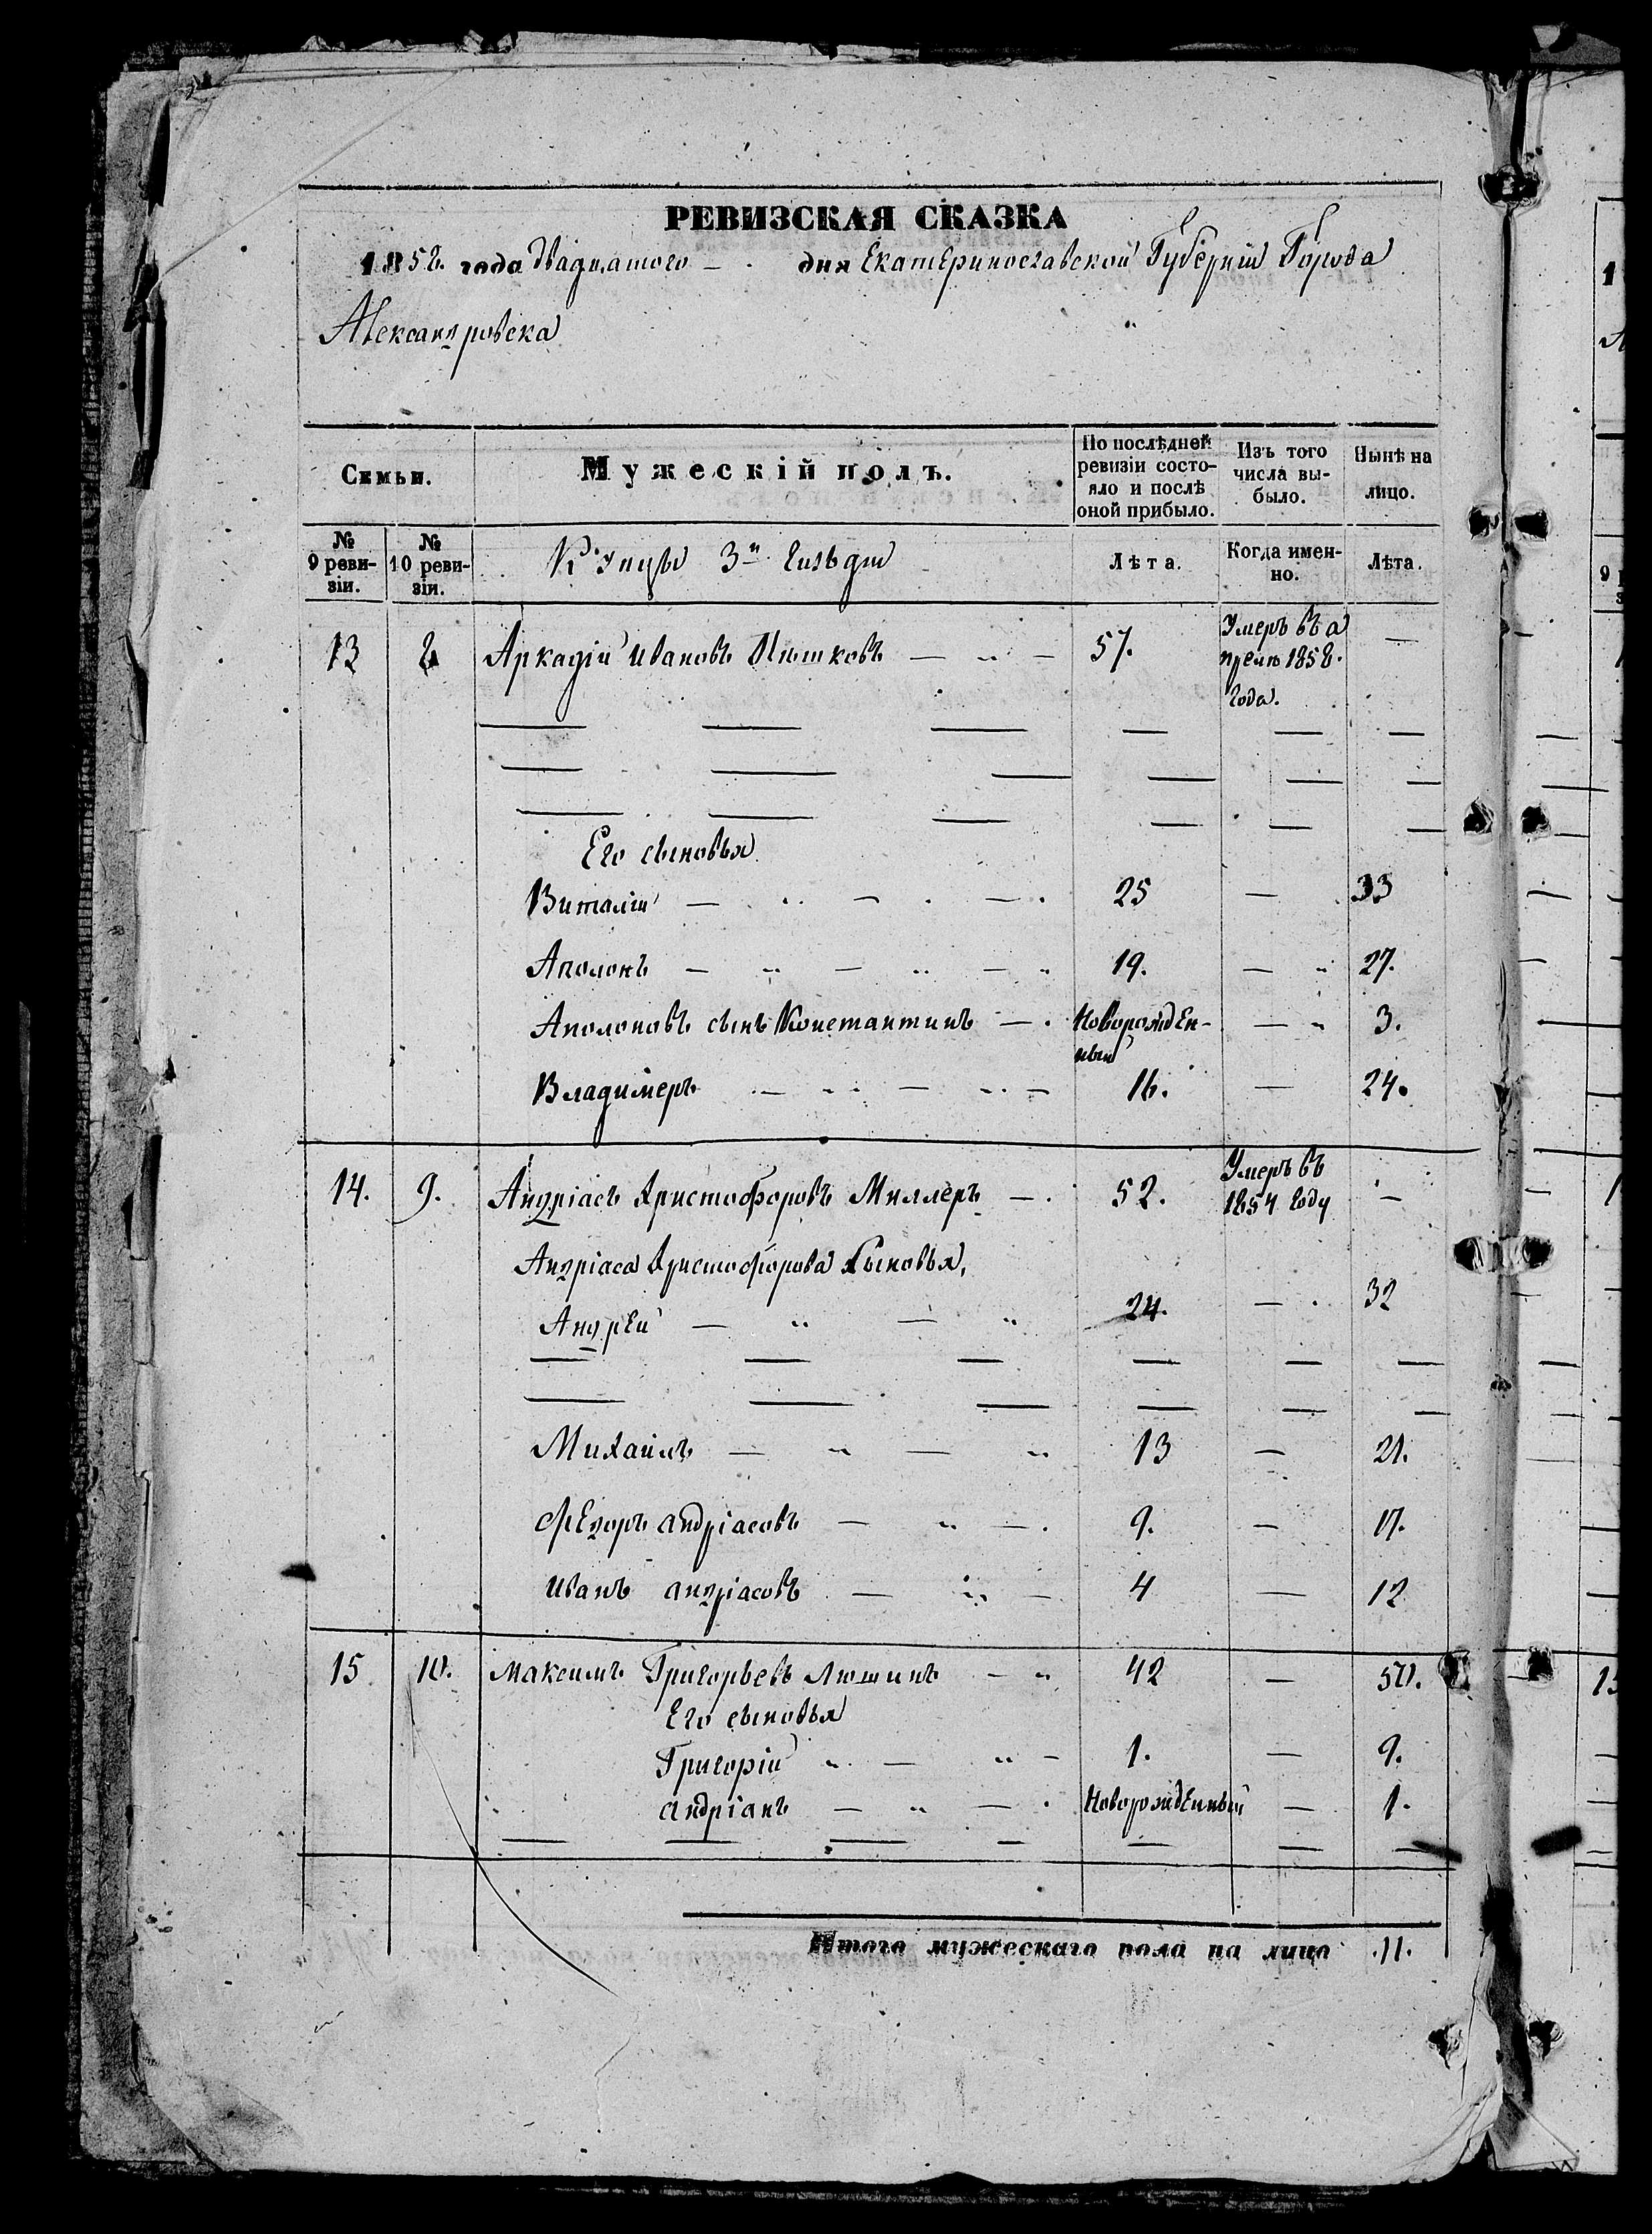 РЕВИЗСКАЯ СКАЗКА
1858. года Двадцатого — дня Екатеринославской Губерніи Города
Александровска
Семьи.
Мужескій полъ.
По послѣдней ревизіи состояло и послѣ оной прибыло.
Изъ того числа выбыло.
Нынѣ на лицо.
№ 9 ревизіи.
№ 10 ревизіи.
Купцы 3й Гильдіи
Лѣта.
Когда именно.
Лѣта.
13 8 Аркадій Ивановъ — 57. Умеръ въ апрелѣ 1858. года. —
Его сыновья
Виталій — 25 — 33
Аполонъ — 19. — 27.
Аполоновъ сынъ Константинъ — Новорожденный — 3.
Владимеръ — 16. — 24.
14. 9. Андріасъ Христофоровъ Миллеръ — 52. Умеръ въ 1854 году —
Андріаса Христофорова Сыновья,
Андрей — 24. — 32
Михаилъ — 13 — 21.
Федоръ андріасовъ — 9. — 17.
Иванъ андріасовъ — 4 — 12
15 10. Максимъ Григорьевъ Люшинъ — 42 — 50.
Его сыновья
Григорій — 1. — 9.
андріанъ — Новорожденный — 1.
Итого мужескаго пола на лицо .11.